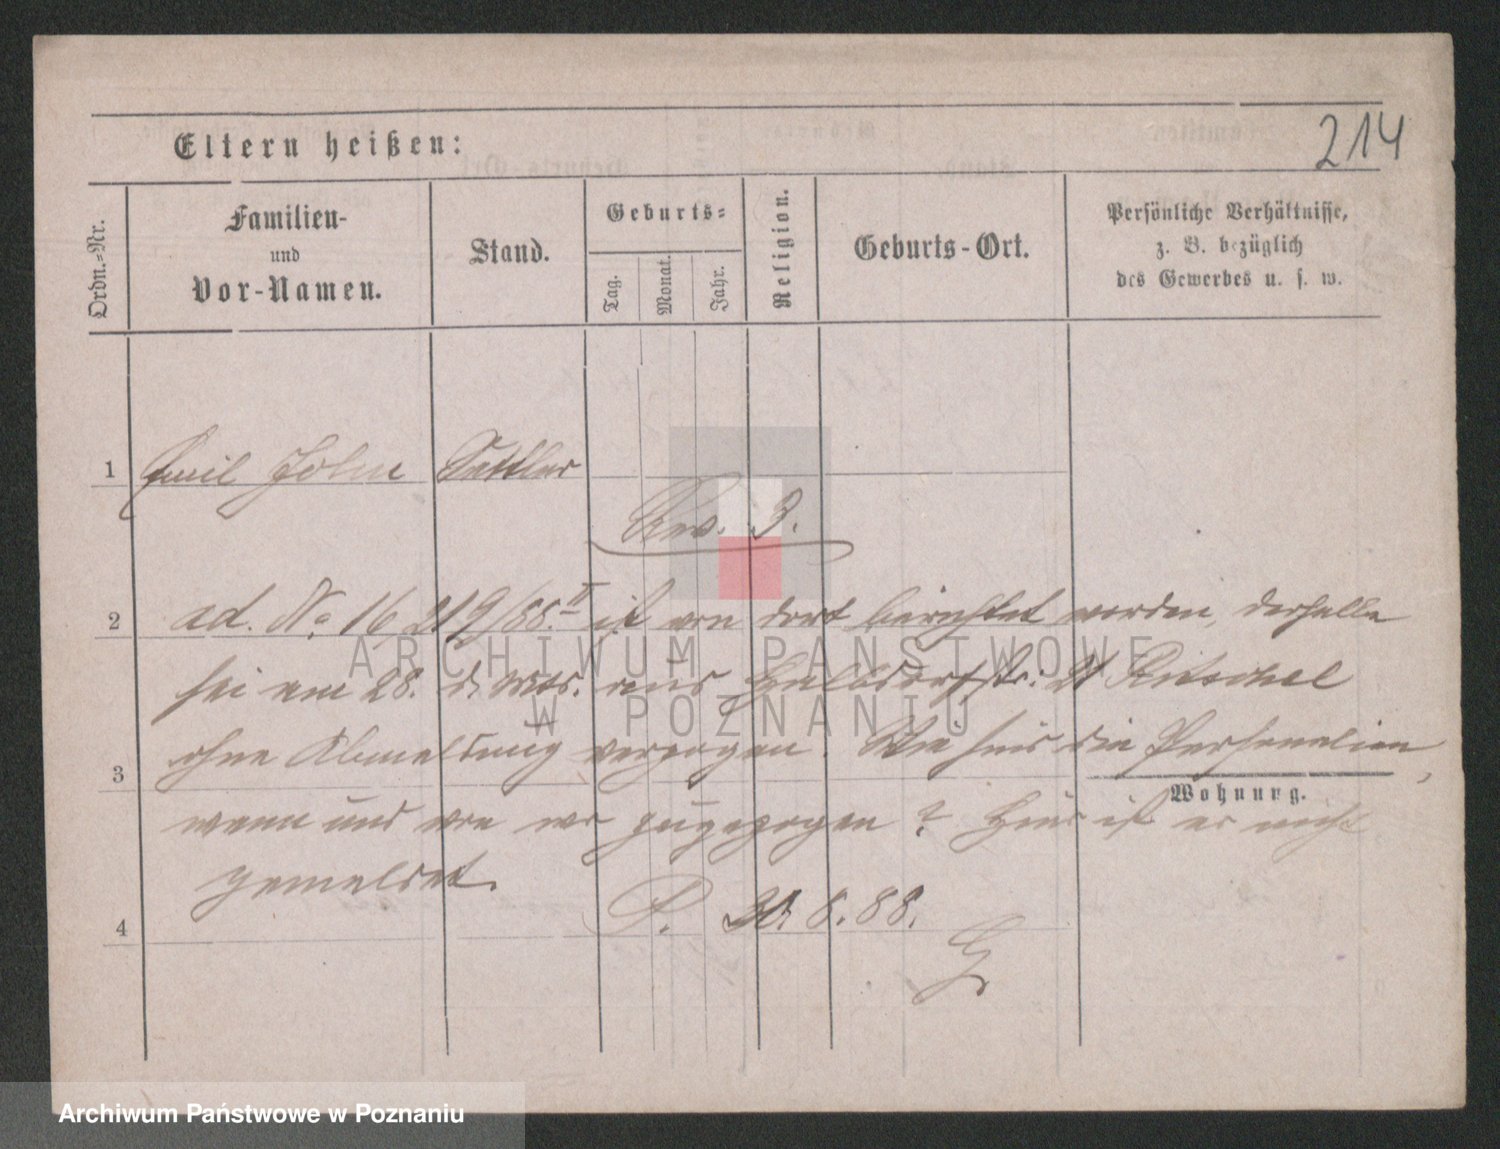 214
Eltern heißen:
Ordn.-Nr.
Familien-
und
Vor-Namen.
Stand.
Geburts-
Tag.
Monat.
Jahr.
Religion.
Geburts-Ort.
Persönliche Verhältnisse,
z. B. bezüglich
des Gewerbes u. s. w.
1
Emil John Sattler
Rev. 3.
2
ad. No 16219/88 II ist von dort berichtet worden, derselbe
sei am 28. d. Mts. aus Halbdorfstr. 21
ohne Abmeldung verzogen. Wie sind die Personalien,
3
Wohnung.
wann und von wo zugezogen? Hier ist er nicht
gemeldet.
4
P. 30/8.88.
ARCHIWUM PAŃSTWOWE
W POZNANIU
Archiwum Państwowe w Poznaniu